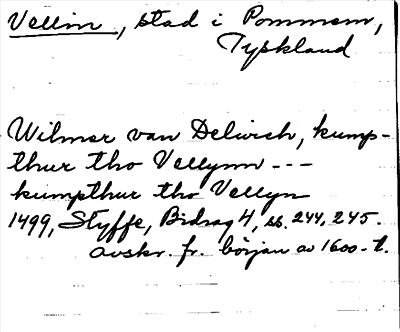 Vellin, stad i Pommern,
Tyskland
Wilmer van Delwich, kump-
thur tho Vellynn ---
kumpthur tho Vellyn
1499, Styffe, Bidrag 4, ss. 244, 245.
avskr. fr. början av 1600-t.